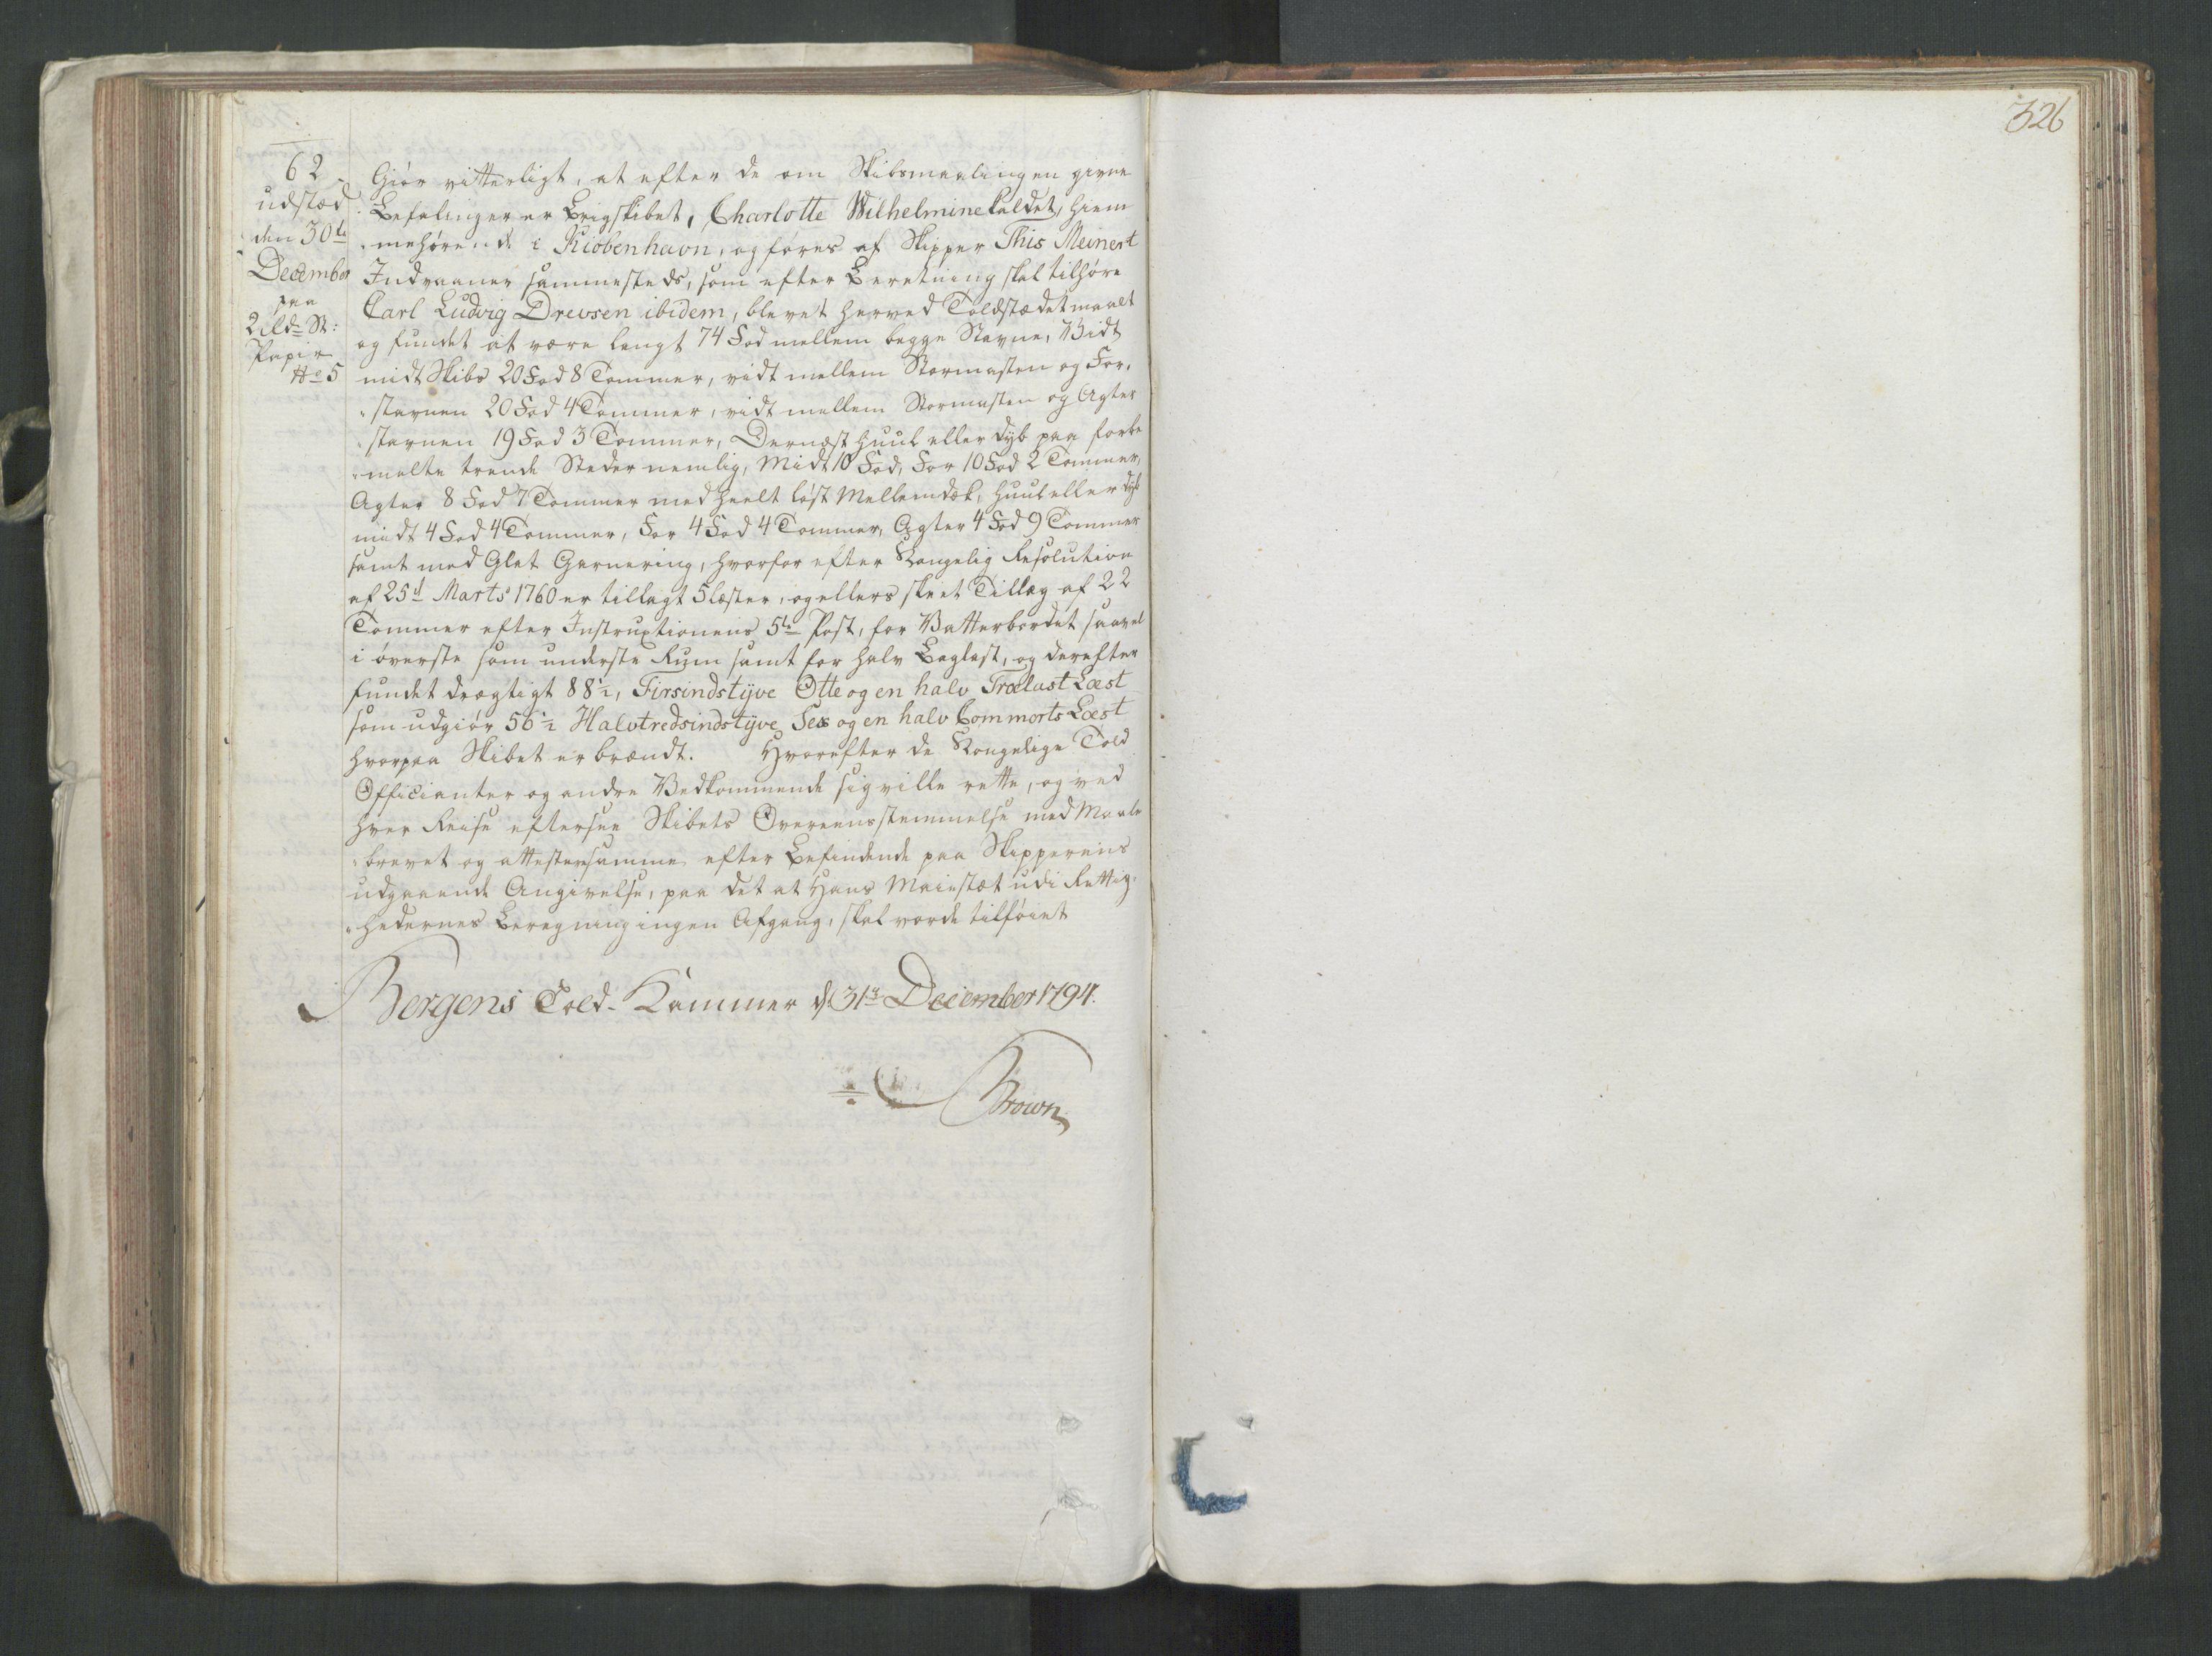 326
62
udstæd
den 30te
December
paa
2 ildr St:
Papir
No 5
Giør vitterligt, at efter de om Skibsmaalingen givne
Befalinger er Brigskibet, Charlotte Wilhelmine kaldet, hiem
mehørende i Kiøbenhavn, og føres af Skipper This Meinert
Indvaaner sammesteds, som efter Beretning skal tilhøre
Carl Ludvig Drewsen ibidem, blevet herved Toldstædet maalt
og fundet at være langt 74 Fod mellem begge Stavne, Vidt
midt Skibs 20 Fod 8 Tommer, vidt mellem Stormasten og For-
stavnen 20 Fod 4 Tommer, vidt mellem Stormasten og Agter
stavnen 19 Fod 3 Tommer, Dernæst huul eller dyb paa forbe
melte trende Steder nemlig, Midt 10 Fod, For 10 Fod 2 Tommer,
Agter 8 Fod 7 Tommer med heelt løst Mellemdæk, huul eller dyb
midt 4 Fod 4 Tommer, For 4 Fod 4 Tommer, Agter 4 Fod 9 Tommer
samt med Glat Garnering, hvorfor efter Kongelig Resolution
af 25d Marts 1760 er tillagt 5 læster, og ellers skeet Tillæg af 22
Tommer efter Instruxtionens 5te Post, for Vatterbordet saavel
i øverste som underste Rum samt for halv Baglast, og derefter
fundet drægtigt 88½, Firsindstyve Otte og en halv Trælast Læst
som udgiør 56½ Halvtredsindstyve Sex og en halv Commerts Læst
hvorpaa Skibet er brændt. Hvorefter de Kongelige Told
Officianter og andre Vedkommende sig ville rette, og ved
hver Reise eftersee Skibets Overeensstemmelse med Maale
brevet og attestere samme efter Befindende paa Skipperens
udgaaende Angivelse, paa det at Hans Maiestæt udi Rettig-
hedernes Beregning ingen Afgang, skal vorde tilføiet
Bergens Told-Kammer d: 31te December 1794.
Brown